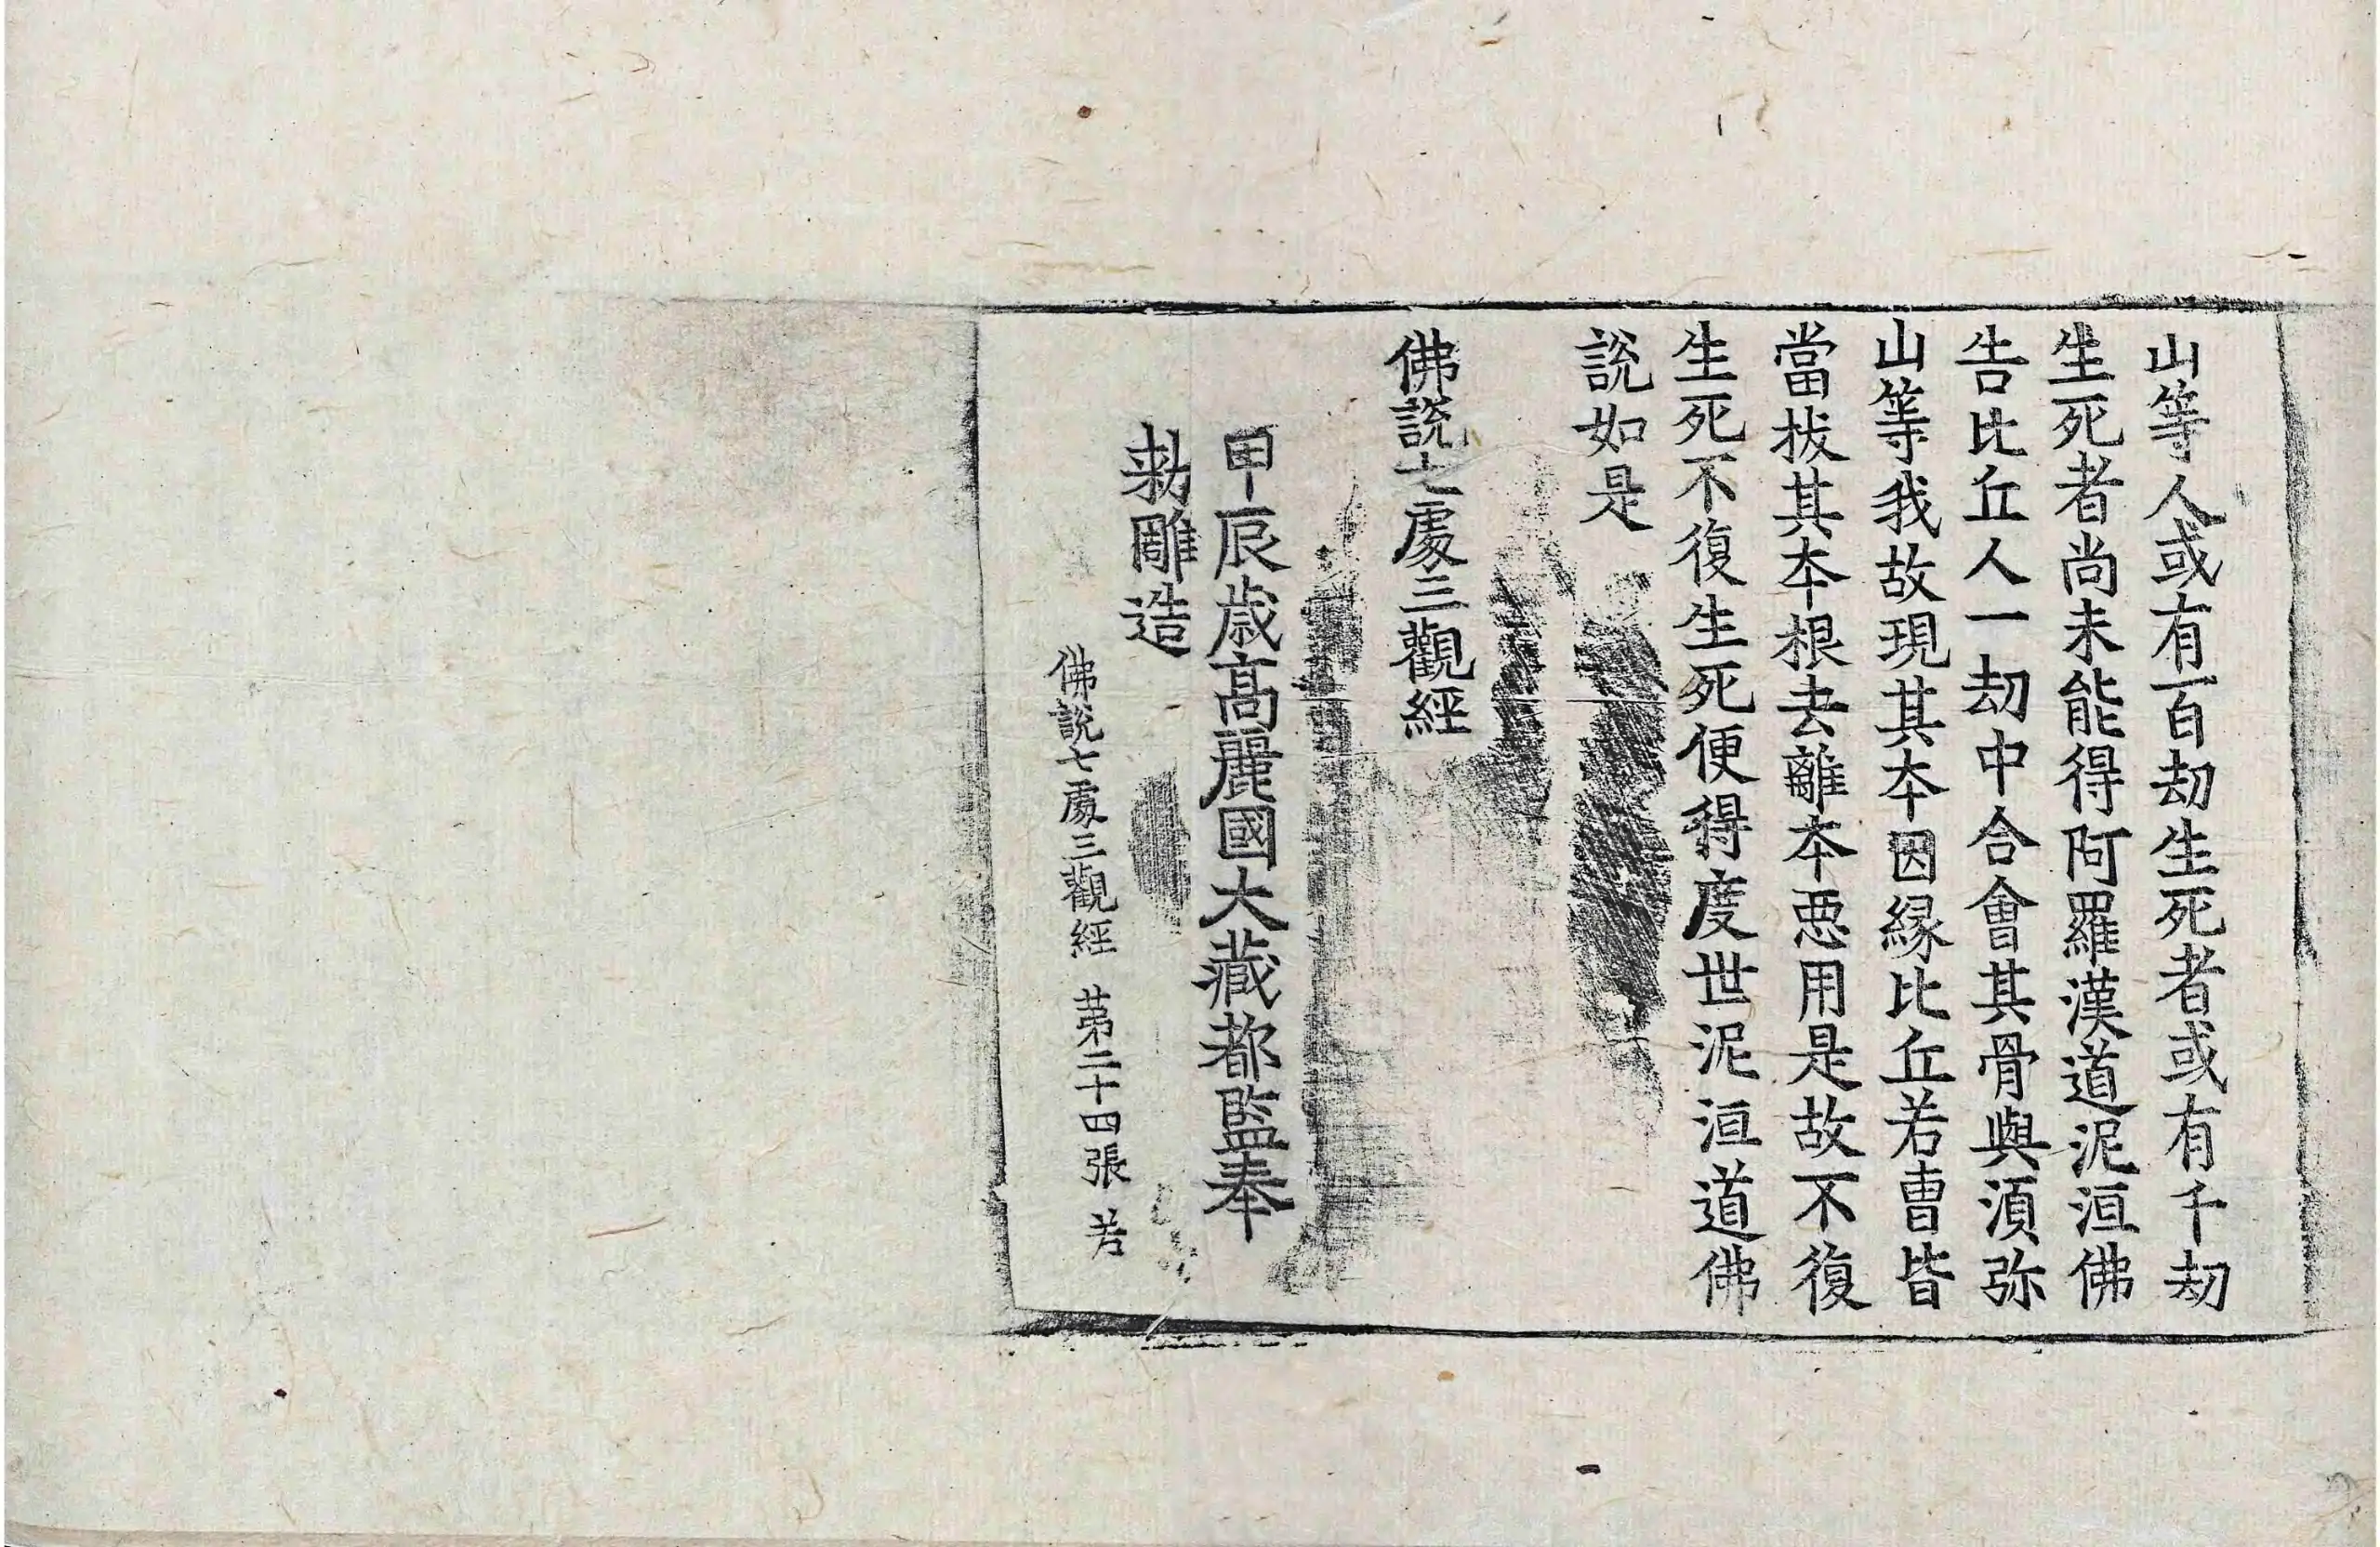 山等人或有百劫生死者或有千劫
生死者尚未能得阿羅漢道泥洹佛
告比丘人一劫中合會其骨與湏弥
山等我故現其夲因縁比丘若曺皆
當拔其夲根去離夲𢙣用是故不復
生死不復生死便得度世泥洹道佛
說如是
佛說七處三觀經
甲辰歳髙麗國大藏都監奉
勑雕造
佛說七處三觀經 苐二十四張 若